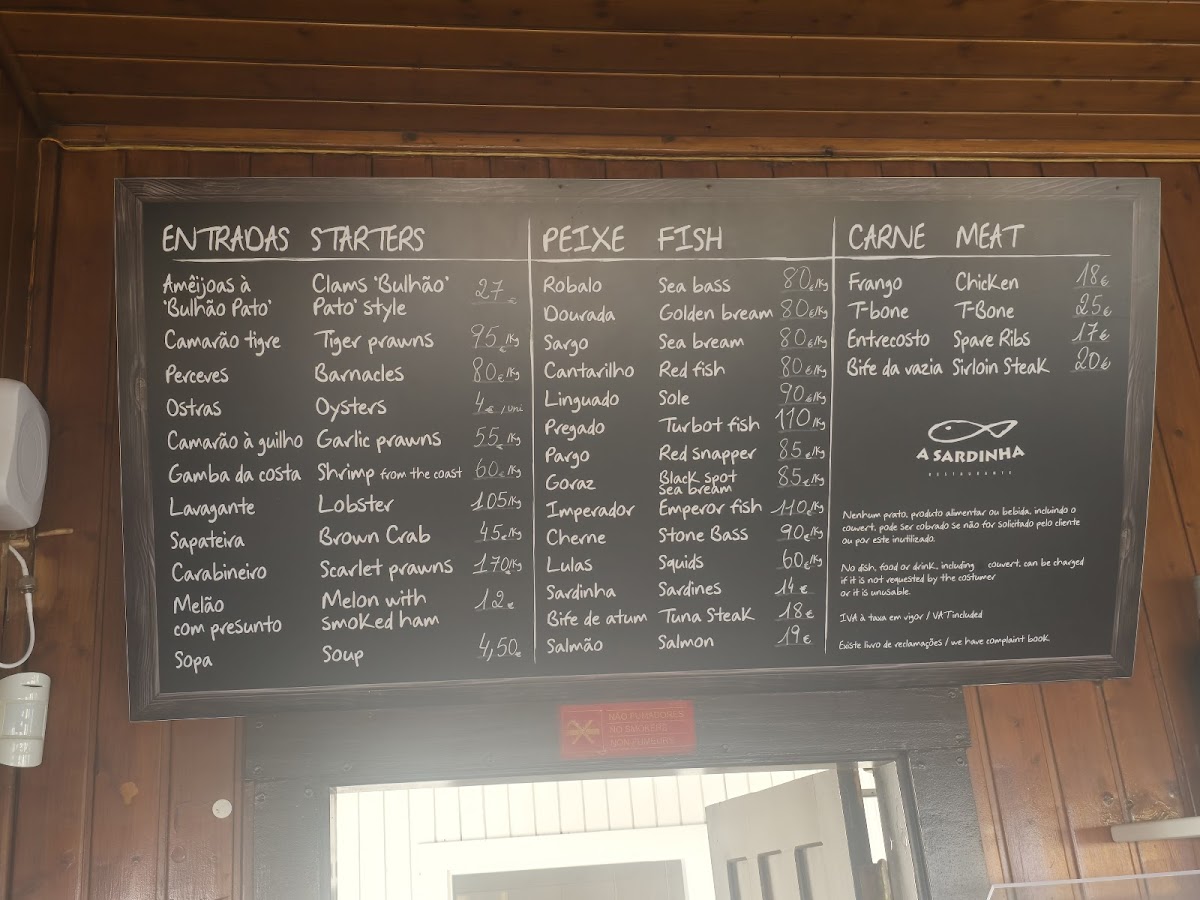 ENTRADAS STARTERS
Amêijoas à Clams 'Bulhão' 27 €
'Bulhão Pato' Pato' style
Camarão tigre Tiger prawns 95€/Kg
Perceves Barnacles 80€/Kg
Ostras Oysters 4€/uni
Camarão à guilho Garlic prawns 55€/Kg
Gamba da costa Shrimp from the coast 60€/Kg
Lavagante Lobster 105/Kg
Sapateira Brown Crab 45€/Kg
Carabineiro Scarlet prawns 170€/Kg
Melão Melon with 12€
com presunto smoked ham
Sopa Soup 4,50€
PEIXE FISH
Robalo Sea bass 80€/Kg
Dourada Golden bream 80€/Kg
Sargo Sea bream 80€/Kg
Cantarilho Red fish 80€/Kg
Linguado Sole 90€/Kg
Pregado Turbot fish 110€/Kg
Pargo Red snapper 85€/Kg
Goraz Black spot 85€/Kg
sea bream
Imperador Emperor fish 110€/Kg
Cherne Stone Bass 90€/Kg
Lulas Squids 60€/Kg
Sardinha Sardines 14€
Bife de atum Tuna Steak 18€
Salmão Salmon 19€
CARNE MEAT
Frango Chicken 18€
T-bone T-Bone 25€
Entrecosto Spare Ribs 17€
Bife da vazia Sirloin Steak 20€
A SARDINHA
RESTAURANTE
Nenhum prato, produto alimentar ou bebida, incluindo o
couvert, pode ser cobrado se não for solicitado pelo cliente
ou por este inutilizado.
No dish, food or drink, including couvert, can be charged
if it is not requested by the costumer
or it is unusable.
IVA à taxa em vigor / VAT included
Existe livro de reclamações / we have complaint book
NÃO FUMADORES
NO SMOKERS
NON FUMEURS